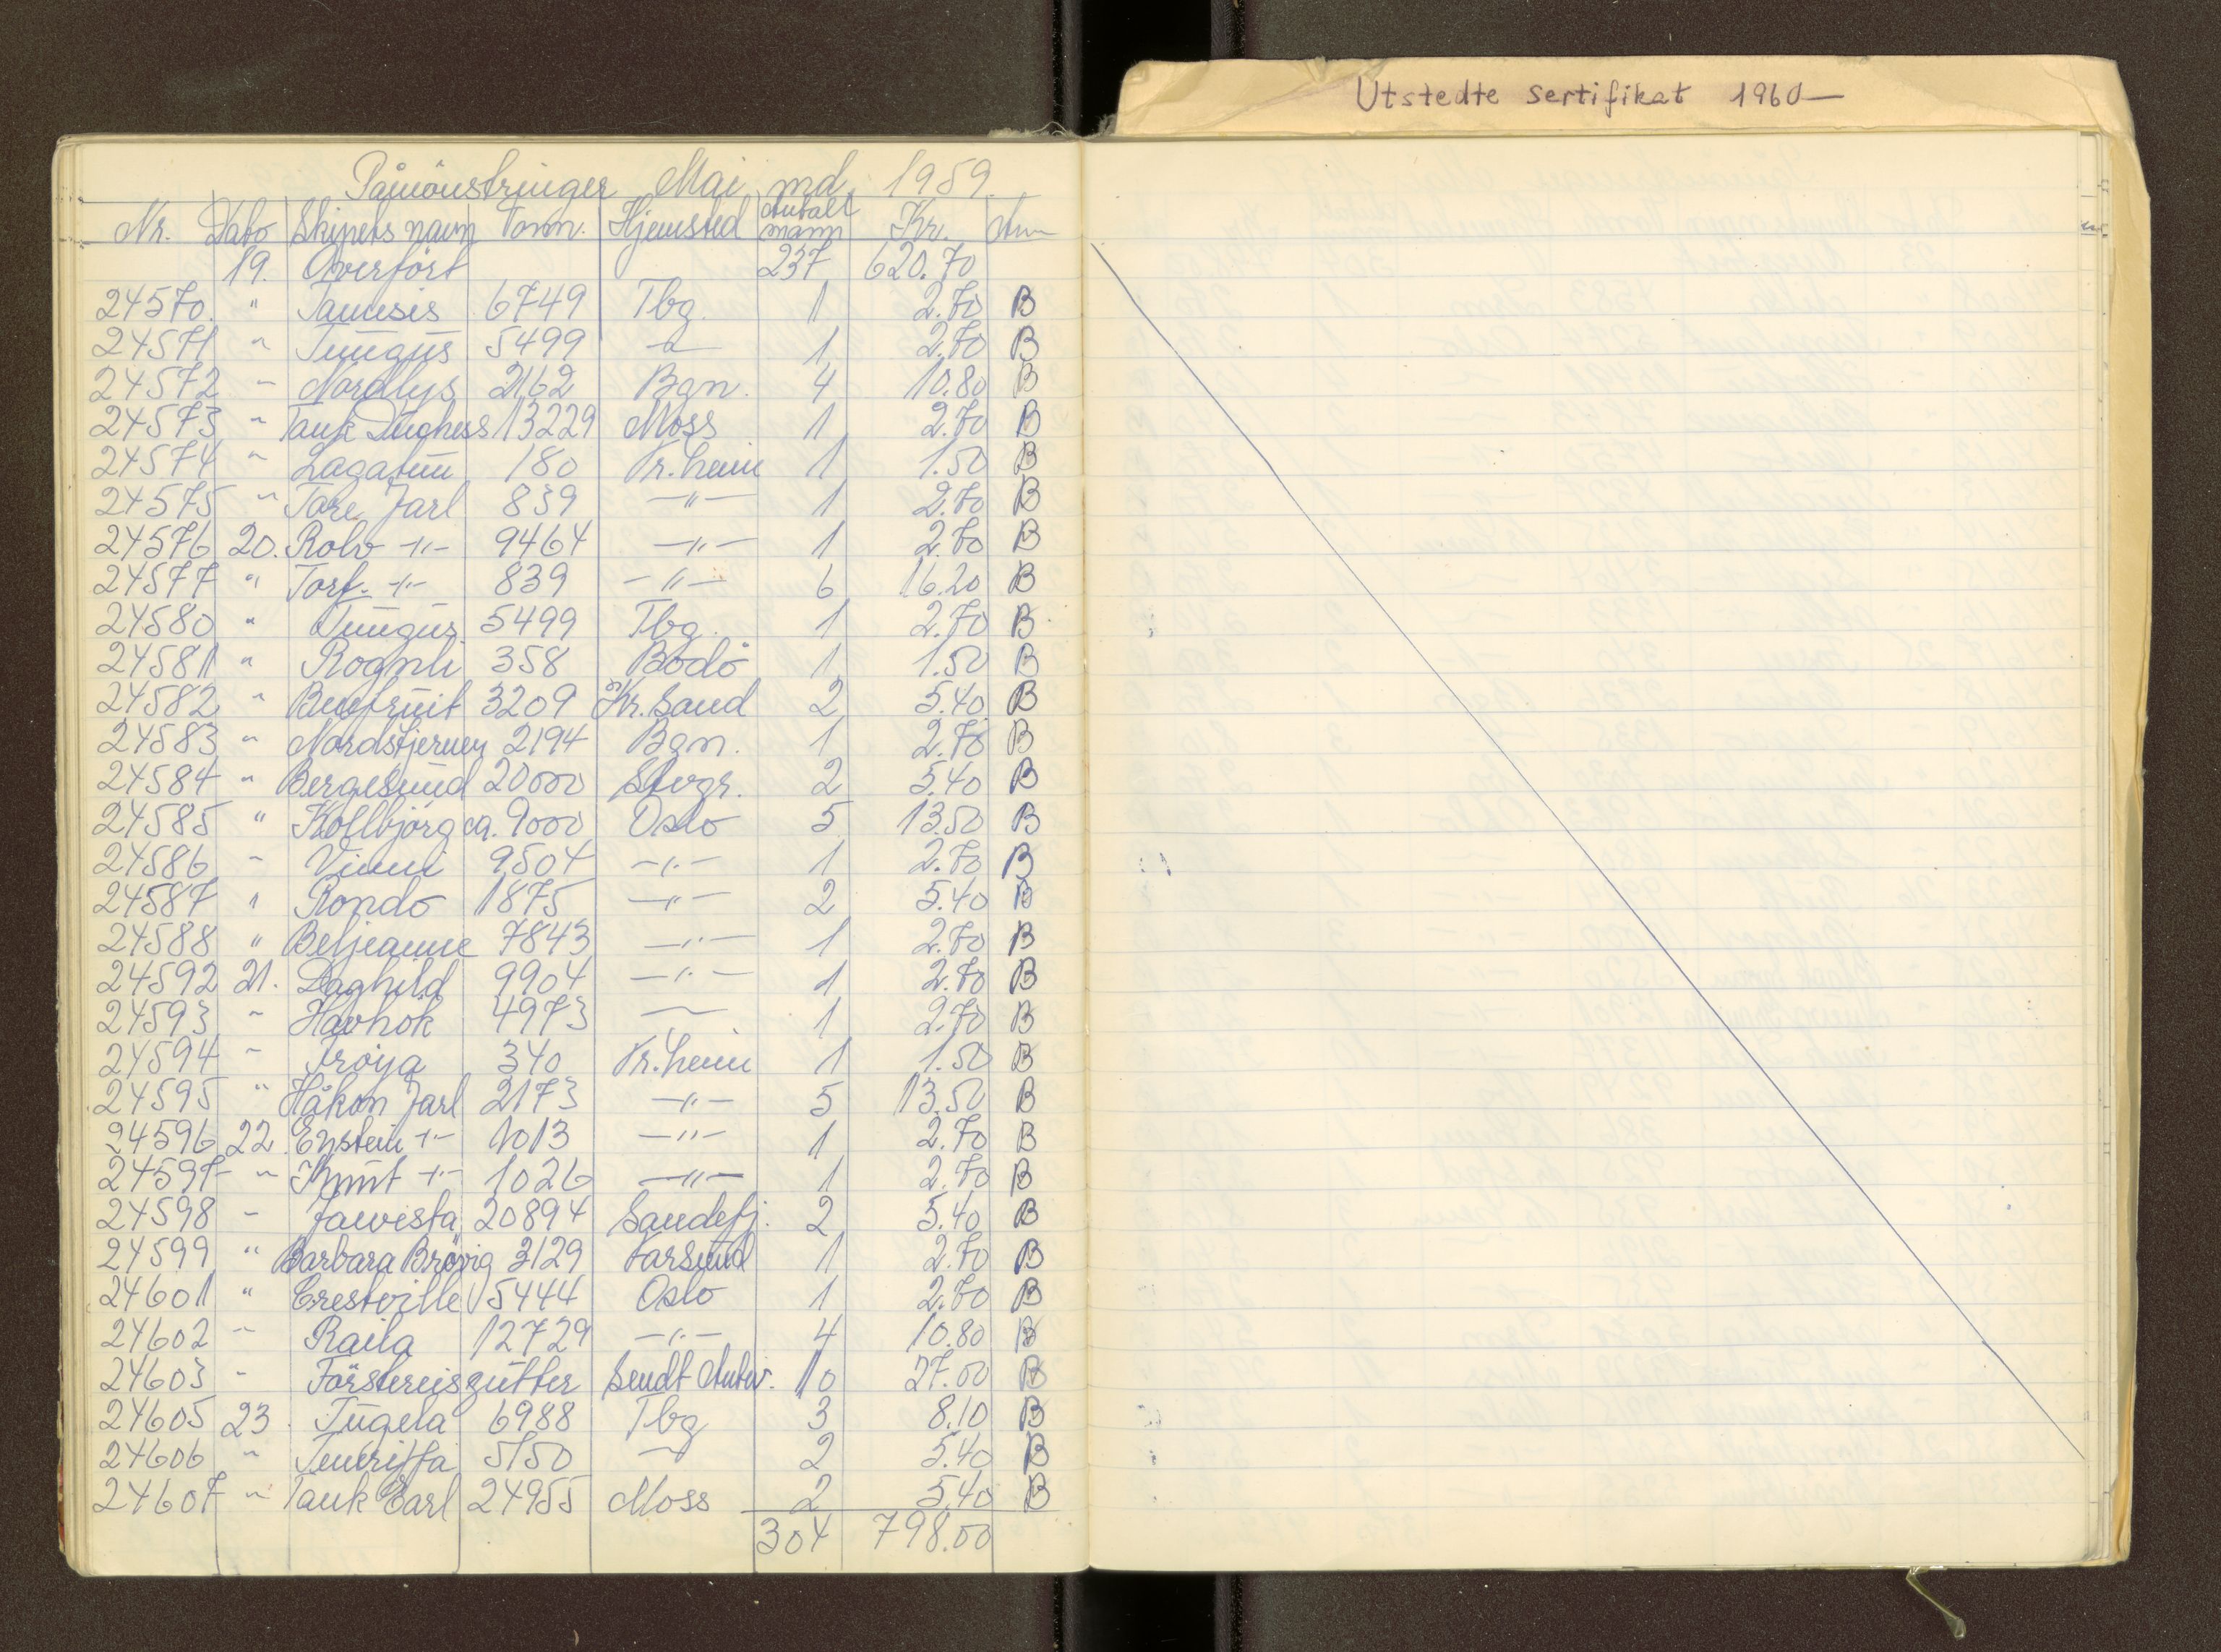 Utstedte sertifikat 1960—
Påmönstringer Mai md. 1959.
Nr. Dato Skipets navn Tonn. Hjemsted Antall mann Kr. Anm
19. Overfört 237 620.70
24570. " Tamesis 6749 Tbg. 1 2.70 B
24571 " Tungus 5499 —"— 1 2.70 B
24572 " Nordlys 2162 Bgn. 4 10.80 B
24573 " Tank Duchess 13229 Moss 1 2.70 B
24574 " Lagatun 180 Tr.heim 1 1.50 B
24575 " Tore Jarl 839 —"— 1 2.70 B
24576 20. Rolv —"— 9464 —"— 1 2.70 B
24577 " Torf. —"— 839 —"— 6 16.20 B
24580 " Tungus 5499 Tbg. 1 2.70 B
24581 " Rognli 358 Bodö 1 1.50 B
24582 " 3209 Kr.Sand 2 5.40 B
24583 " Nordstjernen 2194 Bgn. 1 2.70 B
24584 " Bergesund 20000 Stvgr. 2 5.40 B
24585 " Kollbjörg ca. 9000 Oslo 5 13.50 B
24586 " Vinni 9504 —"— 1 2.70 B
24587 " Rondo 1875 —"— 2 5.40 B
24588 " Beljeanne 7843 —"— 1 2.70 B
24592 21. Daghild 9904 —"— 1 2.70 B
24593 " Havhok 4973 — 1 2.70 B
24594 " Fröya 340 Tr.heim 1 1.50 B
24595 " Håkon Jarl 2173 —"— 5 13.50 B
24596 22. Eystein —"— 1013 —"— 1 2.70 B
24597 " Knut —"— 1026 —"— 1 2.70 B
24598 " Jawesta 20894 Sandefj. 2 5.40 B
24599 " Barbara Brövig 3129 Farsund 1 2.70 B
24601 " Crestville 5444 Oslo 1 2.70 B
24602 " Raila 12729 —"— 4 10.80 B
24603 " Förstereisgutter Sendt Antw. 10 27.00 B
24605 23. Tugela 6988 Tbg 3 8.10 B
24606 " Teneriffa 5150 — 2 5.40 B
24607 " Tank Earl 24955 Moss 2 5.40 B
304 798.00